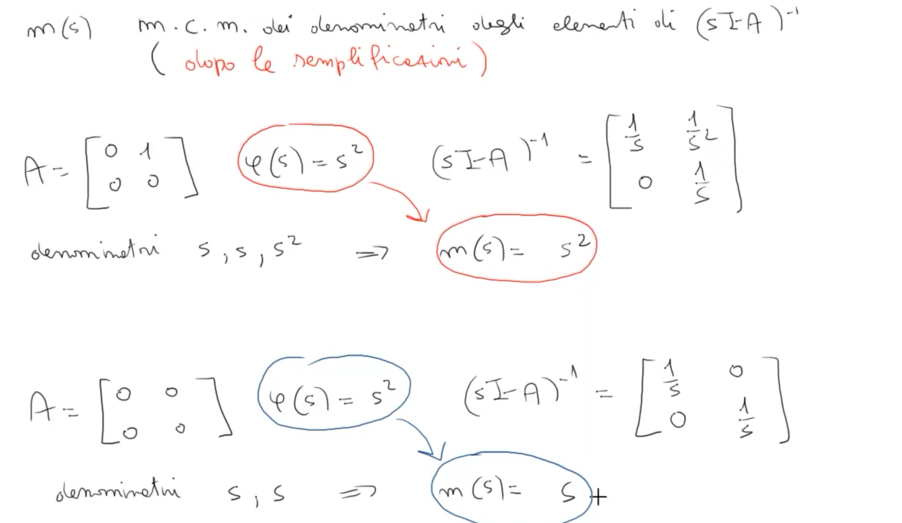 m(s) m.c.m. dei denominatri degli elementi di (sI-A)⁻¹
(dopo le semplificazioni)
A = [0 1; 0 0] φ(s) = s² (sI-A)⁻¹ = [1/s 1/s²; 0 1/s]
denominatri s, s, s² ⇒ m(s) = s²
A = [0 0; 0 0] φ(s) = s² (sI-A)⁻¹ = [1/s 0; 0 1/s]
denominatri s, s ⇒ m(s) = s